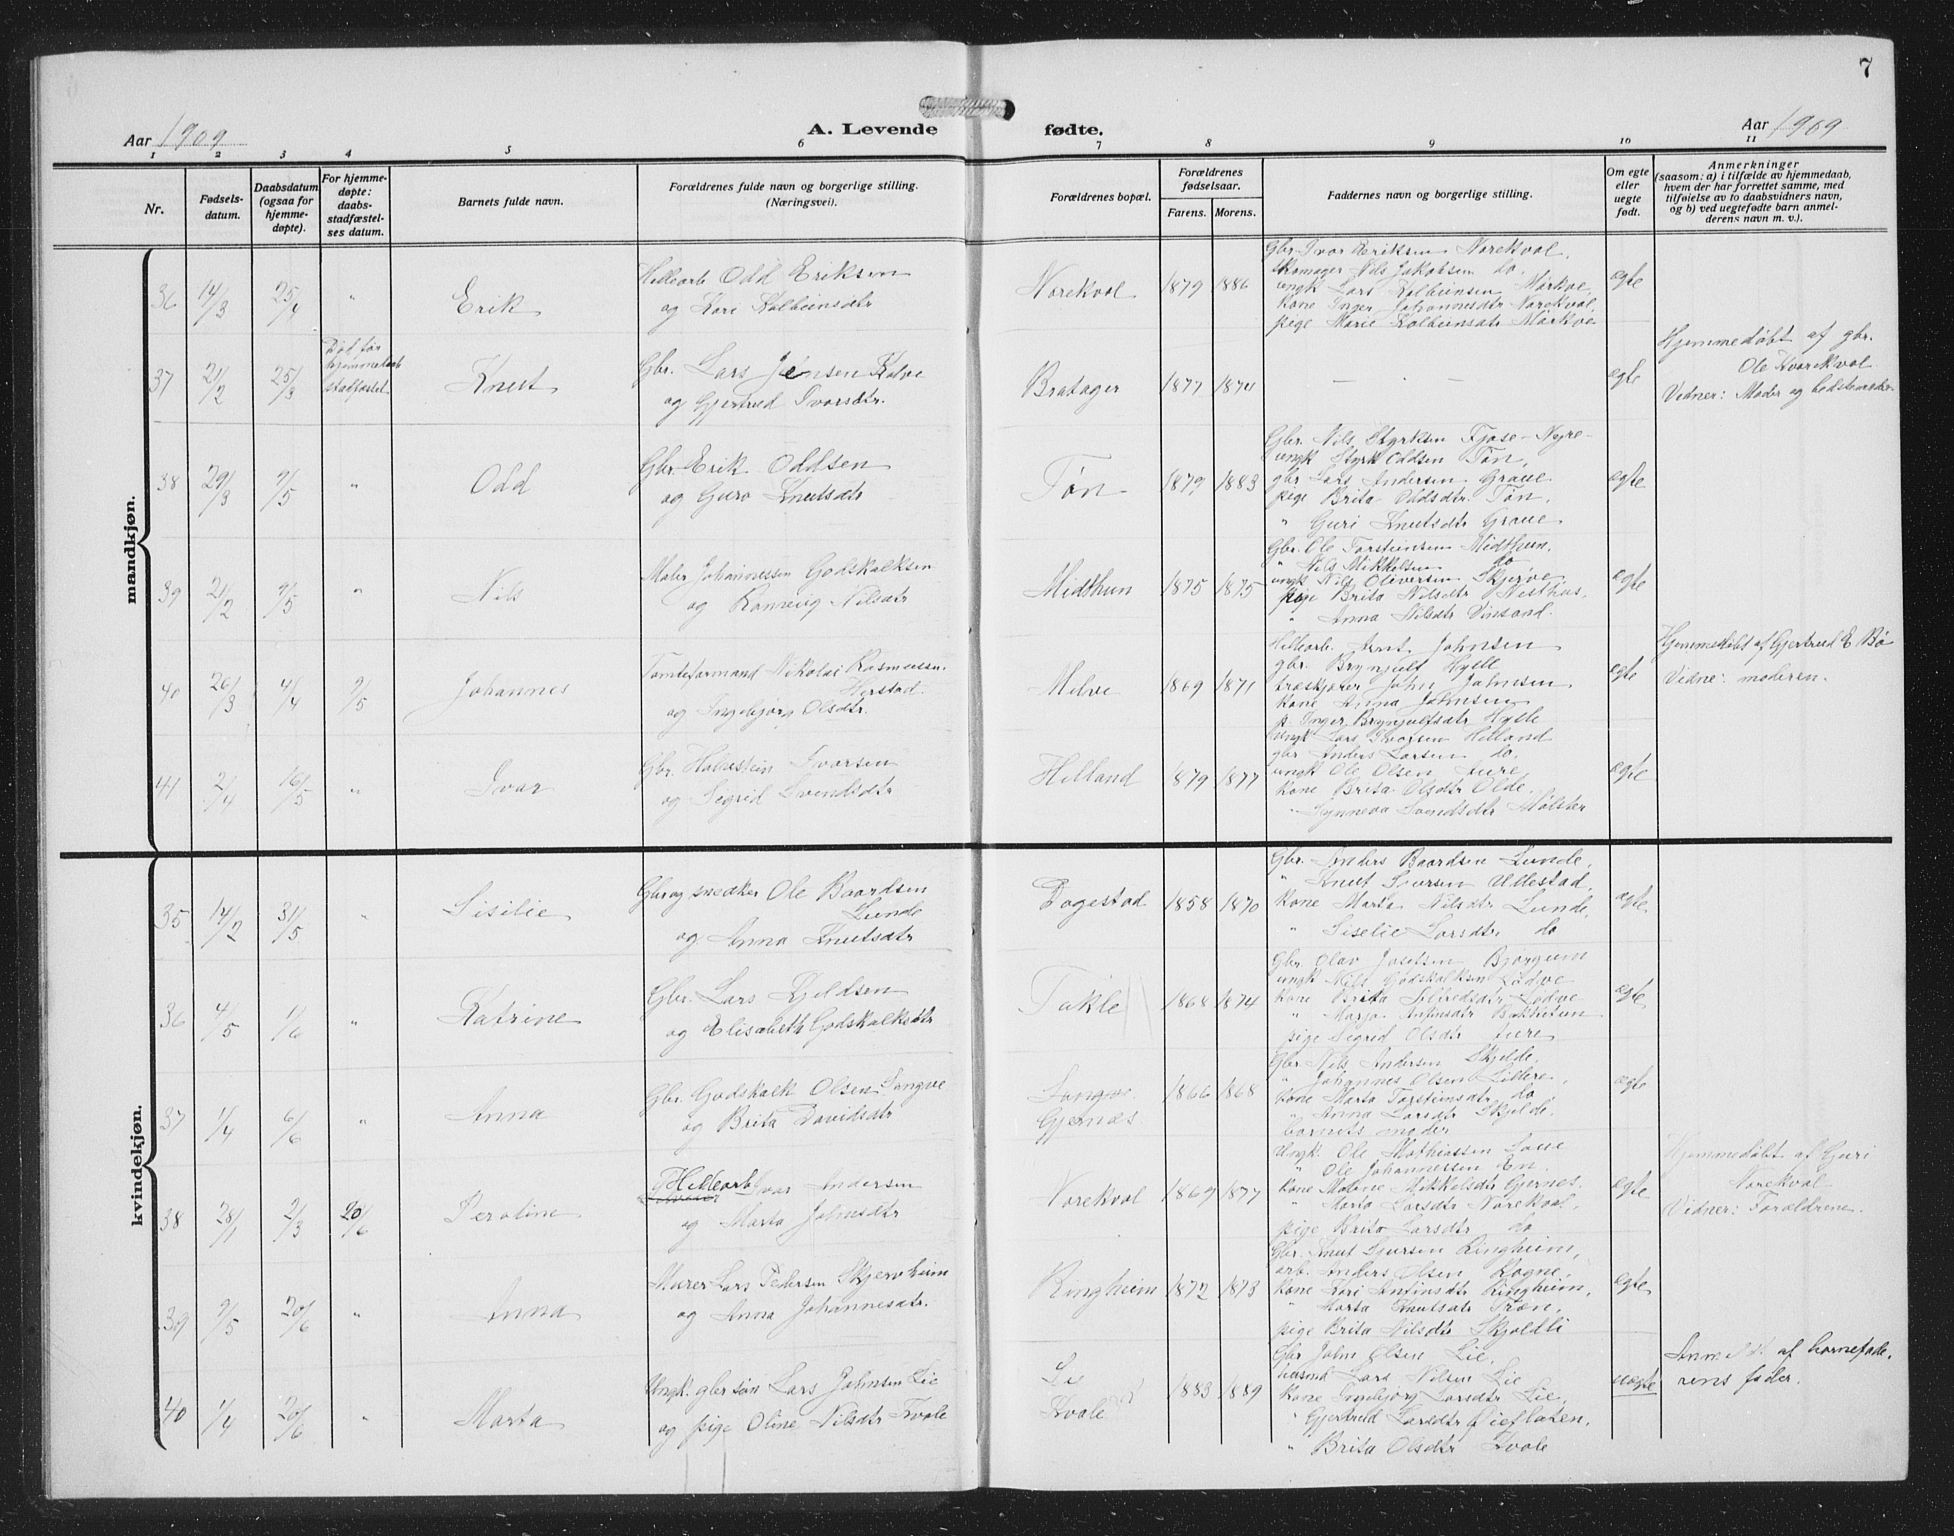 7
Aar 1909
A. Levende fødte.
Aar 1909
1 2 3 4 5 6 7 8 9 10 11
Nr.
Fødsels-
datum.
Daabsdatum
(ogsaa for
hjemme-
døpte).
For hjemme-
døpte:
daabs-
stadfæstel-
ses datum.
Barnets fulde navn.
Forældrenes fulde navn og borgerlige stilling.
(Næringsvei).
Forældrenes bopæl.
Forældrenes
fødselsaar.
Farens. Morens.
Faddernes navn og borgerlige stilling.
Om egte
eller
uegte
født.
Anmerkninger
(saasom: a) i tilfælde av hjemmedaab,
hvem der har forrettet samme, med
tilføielse av to daabsvidners navn,
og b) ved uegtefødte barn anmel-
derens navn m. v.).
mandkjøn.
36 14/3 25/4 " Erik
Hillearb Odd Eriksen
og Kari Kolbeinsdtr
Norekval 1879 1886
Gbr. Ivar Eriksen Norekval,
Skomager Nils Jakobsen do,
ungk Lars Kolbeinsen Mørkve,
kone Inger Johannesdtr Norekval,
pige Marie Kolbeinsdtr Mørkve
egte
37 21/2 25/3
Død før
hjemmedaab
stadfæstet
Knut
Gbr. Lars Jensen Kolve
og Gjertrud Ivarsdtr.
Bratager 1877 1874
- - -
egte
Hjemmedøbt af gbr.
Ole Kvarekval
Vidner: Moder og bedstemoder
38 29/3 9/5 " Odd
Gbr. Erik Oddsen
og Guro Knutsdtr
Tøn 1879 1883
Gbr. Nils Styrksen Fjose-Nyre-
ungk Styrk Oddsen Tøn,
gbr Lars Andersen Graue
pige Brita Oddsdtr. Tøn,
" Guri Knutsdtr Graue
egte
39 21/2 9/5 " Nils
Maler Johannessen Godskalksen
og Ranveig Nilsdtr
Midthun 1875 1875
Gbr. Ole Torsteinsen Midthun,
" Nils Mikkelsen do
ungk Nils Oliversen Skjerve,
pige Brita Nilsdtr Nesthus,
" Anna Nilsdtr Vinsand.
egte
40 26/3 4/4 9/5 Johannes
Tomteformand Nikolai Rasmussen
Herstad
og Ingebjørg Olsdtr.
Milve 1869 1871
Hillearb. Arnt Johnsen
gbr. Brynjulf Hylle
træskjærer John Johnsen
kone Anna Johnsen
p. Inger Brynjulfsdtr Hylle
egte
Hjemmedøbt af Gjertrud E Bø
Vidne: moderen.
41 2/4 16/5 " Ivar
Gbr. Halvstein Ivarsen
og Sigrid Svendsdtr
Helland 1879 1877
Ungk Lars Ivarsen Helland
gbr Anders Larsen do,
ungk Ole Olsen Aure,
kone Brita Olsdtr Olde,
" Synneva Svendsdtr Mølster
egte
kvindekjøn.
35 14/2 31/5 " Sisilie
Gbr og snedker Ole Baardsen
Lunde
og Anna Knutsdtr
Dagestad 1858 1870
Gbr. Anders Baardsen Lunde,
" Knut Sjursen Ullestad,
kone Marta Nilsdtr Lunde,
" Siselie Larsdtr do
egte
36 4/5 1/6 " Katrine
Gbr. Lars Kjeldsen
og Elisabeth Godskalksdtr
Takle 1868 1874
Gbr Olav Josefsen Bjørgum
ungk Nils Godskalksen Lødve
kone Brita Silfredsdtr Lødve
" Marja Anfinsdtr Bakketun
pige Sigrid Olsdtr Aure
egte
37 1/4 6/6 " Anna
Gbr. Godskalk Olsen Songve
og Brita Davidsdtr
Songve
Gjernes 1866 1868
Gbr Nils Andersen Skjelde,
" Johannes Olsen Lillere,
kone Marta Torsteinsdtr do,
" Anna Larsdtr Skjelde.
barnets moder
egte
38 28/1 2/3 20/6 Peroline
Hillearb Ivar Andersen
og Marta Johnsdtr
Norekval 1869 1877
Ungk. Ole Mathiassen Lone
" Ole Johannessen En.
kone Malene Mikkelsdtr Gjernes,
" Marta Larsdtr Norekval,
pige Brita Larsdtr do
egte
Hjemmedøbt af Guri
Norekval
Vidner: Forældrene.
39 9/5 20/6 " Anna
Murer Lars Pedersen Skjervheim
og Anna Johannesdtr.
Ringheim 1872 1873
Gbr. Knut Sjursen Ringheim,
arb. Anders Olsen Rogne,
kone Kari Anfinsdtr Ringheim,
" Marta Knutsdtr Træn,
pige Brita Nilsdtr Skjoldli
egte
40 1/4 20/6 " Marta
Ungk. gbr søn Lars Johnsen Lie
og pige Oline Nilsdtr Kvale
Lie
Kvale 1883 1889
Gbr John Olsen Lie,
husmd Lars Nilsen Lie
kone Ingebjørg Larsdtr Lie,
" Gjertrud Larsdtr Lieflaten,
" Brita Olsdtr Kvale
uegte
Anmeldt af barnefade,
rens fader.